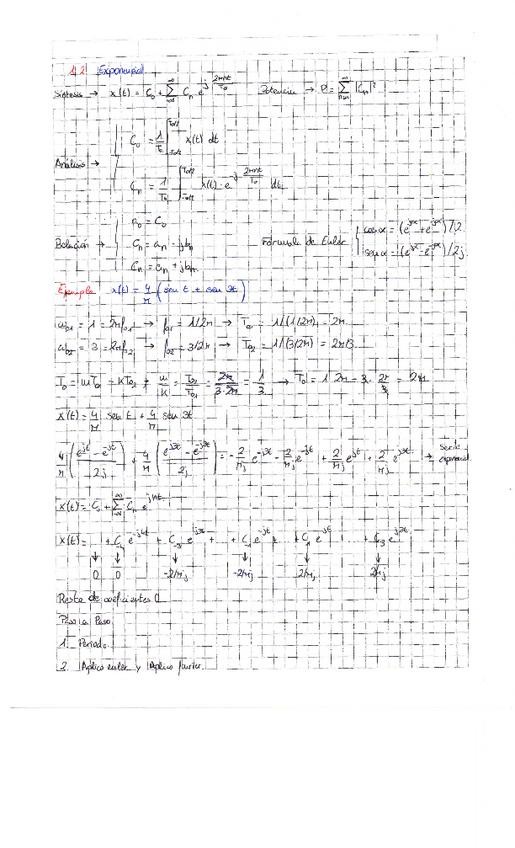 4.2 Exponencial
Síntesis → x(t) = C₀ + Σ Cₙ e^{j 2πnt/T₀} Potencia → P = Σ |Cₙ|²
C₀ = 1/T₀ ∫ x(t) dt
Análisis →
Cₙ = 1/T₀ ∫ x(t) · e^{-j 2πnt/T₀} dt
a₀ = C₀
Relación → Cₙ = aₙ - jbₙ Fórmula de Euler
C₋ₙ = aₙ + jbₙ
cos x = (e^{jx} + e^{-jx})/2
sen x = (e^{jx} - e^{-jx})/2j
Ejemplo x(t) = 4/π (sen t + sen 3t)
ω₀₁ = 1 = 2πf₀₁ → f₀₁ = 1/2π → T₀₁ = 1/(1/2π) = 2π
ω₀₂ = 3 = 2πf₀₂ → f₀₂ = 3/2π → T₀₂ = 1/(3/2π) = 2π/3
T₀ = mT₀₁ = kT₀₂ ; m/k = T₀₂/T₀₁ = 2π/3·2π = 1/3 → T₀ = 1 · 2π = 3 · 2π/3 = 2π
x(t) = 4/π sen t + 4/π sen 3t
4/π (e^{jt} - e^{-jt} / 2j) + 4/π (e^{j3t} - e^{-j3t} / 2j) = -2/πj e^{-j3t} - 2/πj e^{-jt} + 2/πj e^{jt} + 2/πj e^{j3t} → Serie exponencial
x(t) = C₀ + Σ Cₙ e^{jnt}
x(t) = ... + C₋₄ e^{-j4t} + C₋₃ e^{-j3t} + ... + C₋₁ e^{-jt} + ... + C₁ e^{jt} + C₃ e^{j3t}
↓ ↓ ↓ ↓ ↓ ↓
0 0 -2/πj -2/πj 2/πj 2/πj
Resto de coeficientes 0
Paso a Paso
1. Periodo
2. Aplico euler y Aplico fourier.